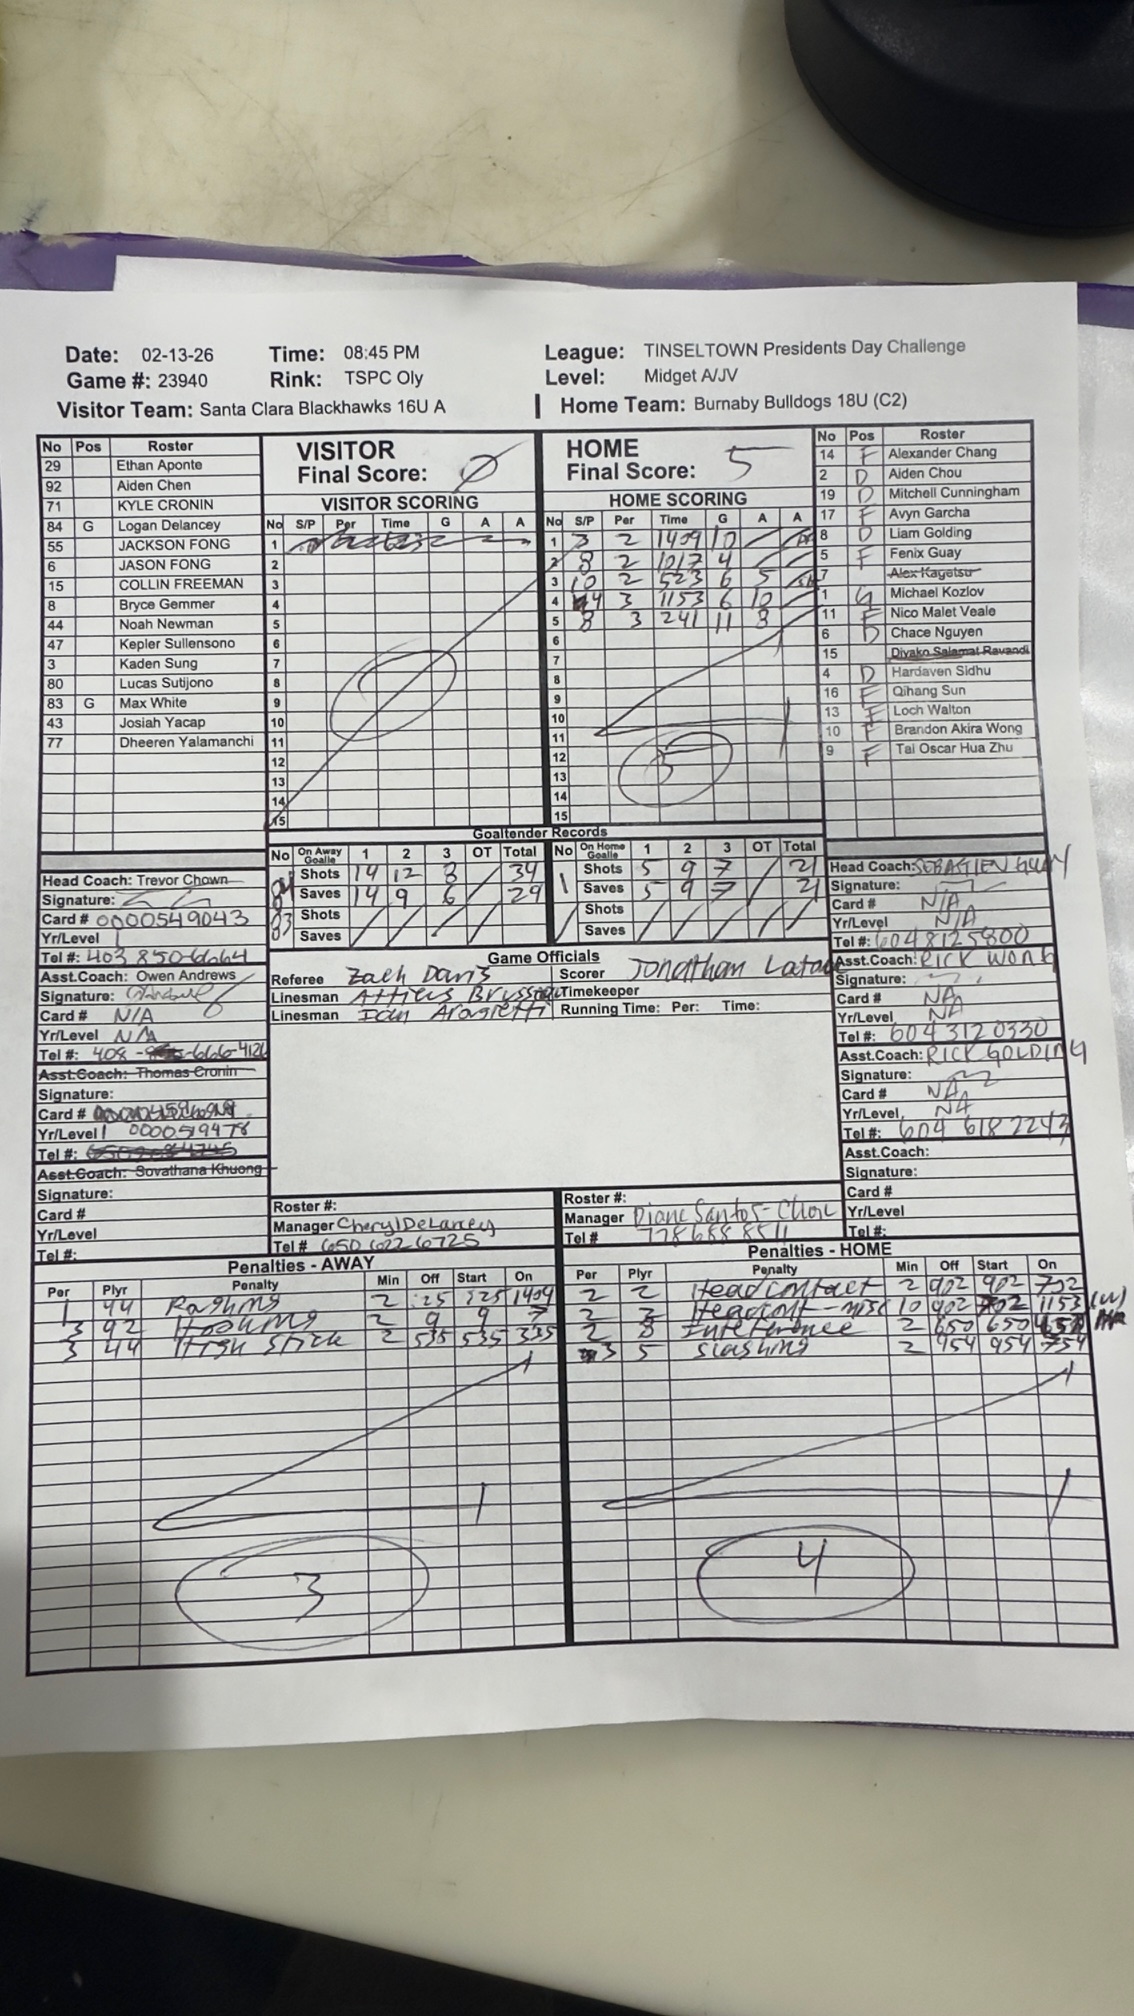 Date: 02-13-26 Time: 08:45 PM League: TINSELTOWN Presidents Day Challenge
Game #: 23940 Rink: TSPC Oly Level: Midget A/JV
Visitor Team: Santa Clara Blackhawks 16U A Home Team: Burnaby Bulldogs 18U (C2)
No Pos Roster
29 Ethan Aponte
92 Aiden Chen
71 KYLE CRONIN
84 G Logan Delancey
55 JACKSON FONG
6 JASON FONG
15 COLLIN FREEMAN
8 Bryce Gemmer
44 Noah Newman
47 Kepler Sullensono
3 Kaden Sung
80 Lucas Sutijono
83 G Max White
43 Josiah Yacap
77 Dheeren Yalamanchi
VISITOR
Final Score: 0
VISITOR SCORING
No S/P Per Time G A A
1
2
3
4
5
6
7
8
9
10
11
12
13
14
15
HOME
Final Score: 5
HOME SCORING
No S/P Per Time G A A
1 3 2 1409 10
2 8 2 1017 4
3 10 2 523 6 5
4 4 3 1153 6 10
5 8 3 241 11 8
6
7
8
9
10
11
12
13
14
15
5
No Pos Roster
14 F Alexander Chang
2 D Aiden Chou
19 D Mitchell Cunningham
17 F Avyn Garcha
8 D Liam Golding
5 F Fenix Guay
7 Alex Kagetsu
1 G Michael Kozlov
11 F Nico Malet Veale
6 D Chace Nguyen
15 Diyako Salamat Ravandi
4 D Hardaven Sidhu
16 F Qihang Sun
13 F Loch Walton
10 F Brandon Akira Wong
9 F Tai Oscar Hua Zhu
Goaltender Records
No On Away Goalie 1 2 3 OT Total No On Home Goalie 1 2 3 OT Total
Shots 14 12 8 34 1 Shots 5 9 7 21
Saves 14 9 6 29 Saves 5 9 7 21
83 Shots Shots
Saves Saves
Head Coach: Trevor Chown
Signature:
Card # 0000549043
Yr/Level
Tel #: 403 850-6664
Asst.Coach: Owen Andrews
Signature:
Card # N/A
Yr/Level N/A
Tel #: 408 - 666-4126
Asst.Coach: Thomas Cronin
Signature:
Card #
Yr/Level 0000519478
Tel #:
Asst.Coach: Sovathana Khuong
Signature:
Card #
Yr/Level
Tel #:
Game Officials
Referee Zach Davis Scorer Jonathan
Linesman Atticus Timekeeper
Linesman Running Time: Per: Time:
Roster #:
Manager Cheryl DeLancey
Tel # 650 622 6725
Roster #:
Manager Diane Santos-Chou
Tel # 778 688 8511
Head Coach: SEBASTIEN GUAY
Signature:
Card # N/A
Yr/Level N/A
Tel #: 6048125800
Asst.Coach: RICK WONG
Signature:
Card # NA
Yr/Level NA
Tel #: 604 312 0330
Asst.Coach: RICK GOLDING
Signature:
Card # NA
Yr/Level NA
Tel #: 604 618 2243
Asst.Coach:
Signature:
Card #
Yr/Level
Tel #:
Penalties - AWAY
Per Plyr Penalty Min Off Start On
1 44 Roughing 2 :25 :25 1409
3 92 Hooking 2 9 9 7
3 44 High Stick 2 535 535 335
3
Penalties - HOME
Per Plyr Penalty Min Off Start On
2 2 Head contact 2 902 902 702
2 2 Headcont - misc 10 902 702 1153
2 8 Interference 2 650 650 450
3 5 Slashing 2 954 954 754
4